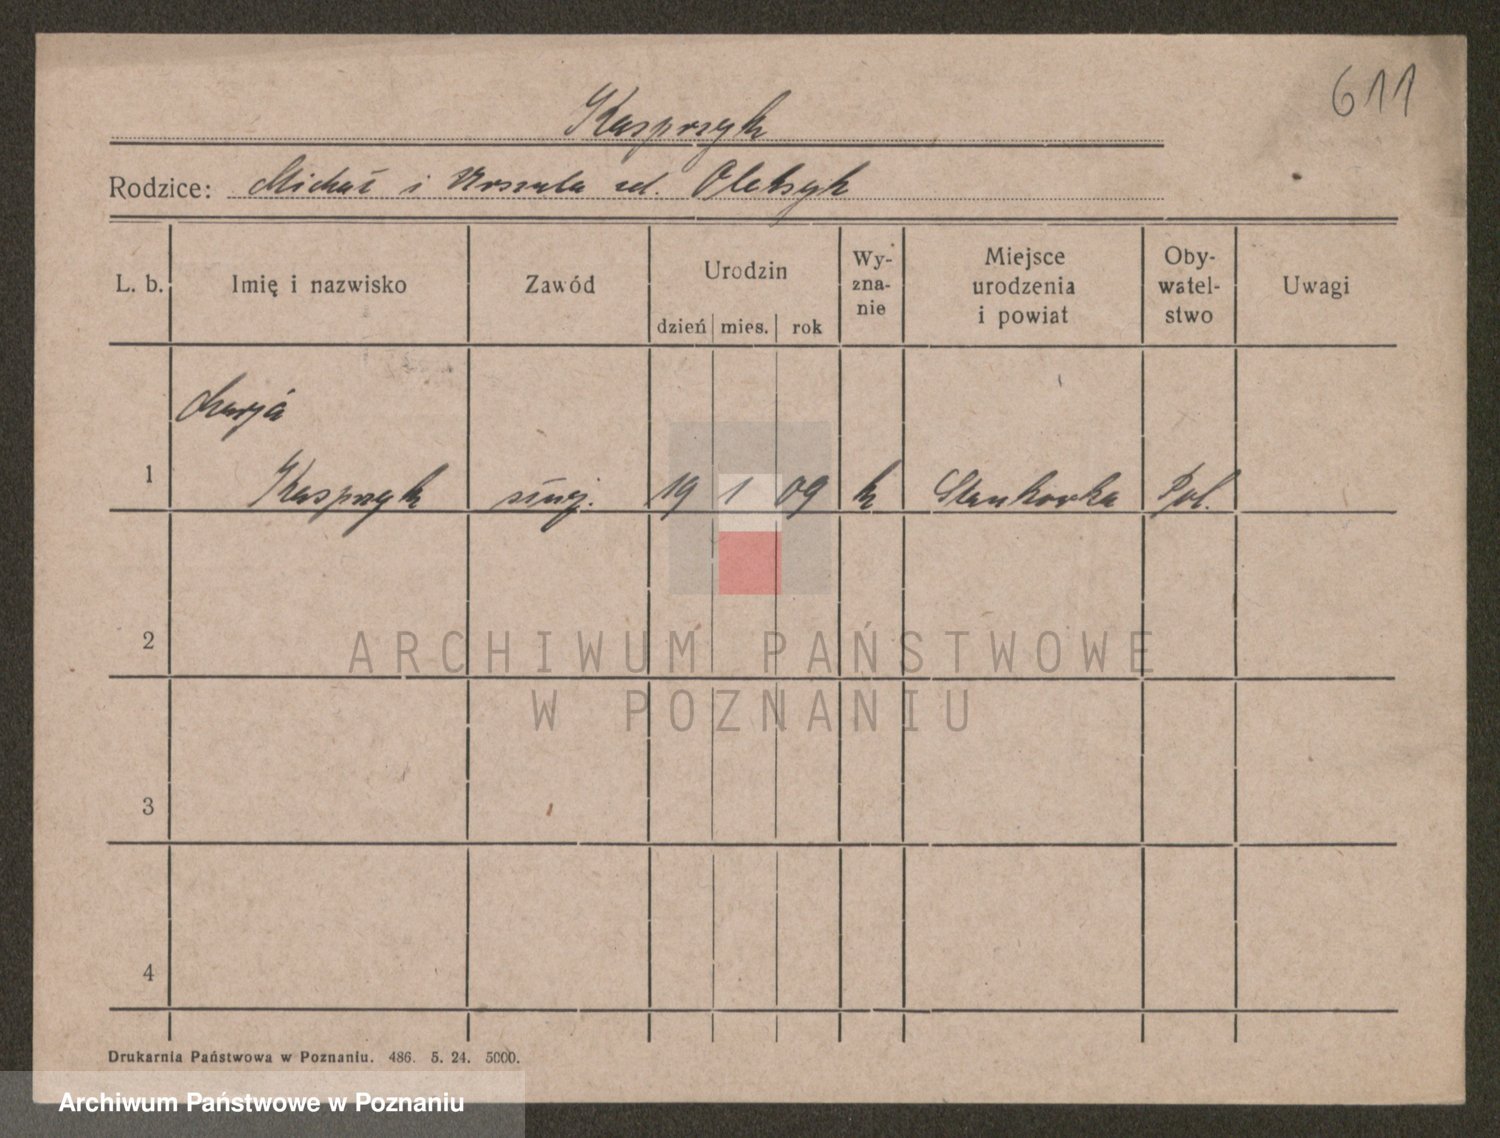 611
Kasprzyk
Rodzice: Michał i Urszula ud. Olekszyk
L. b. Imię i nazwisko Zawód Urodzin dzień mies. rok Wy- zna- nie Miejsce urodzenia i powiat Oby- watel- stwo Uwagi
Marja
1 Kasprzyk służ. 19 1 09 k Pol.
2
3
4
ARCHIWUM PAŃSTWOWE
W POZNANIU
Drukarnia Państwowa w Poznaniu. 486. 5. 24. 5000.
Archiwum Państwowe w Poznaniu